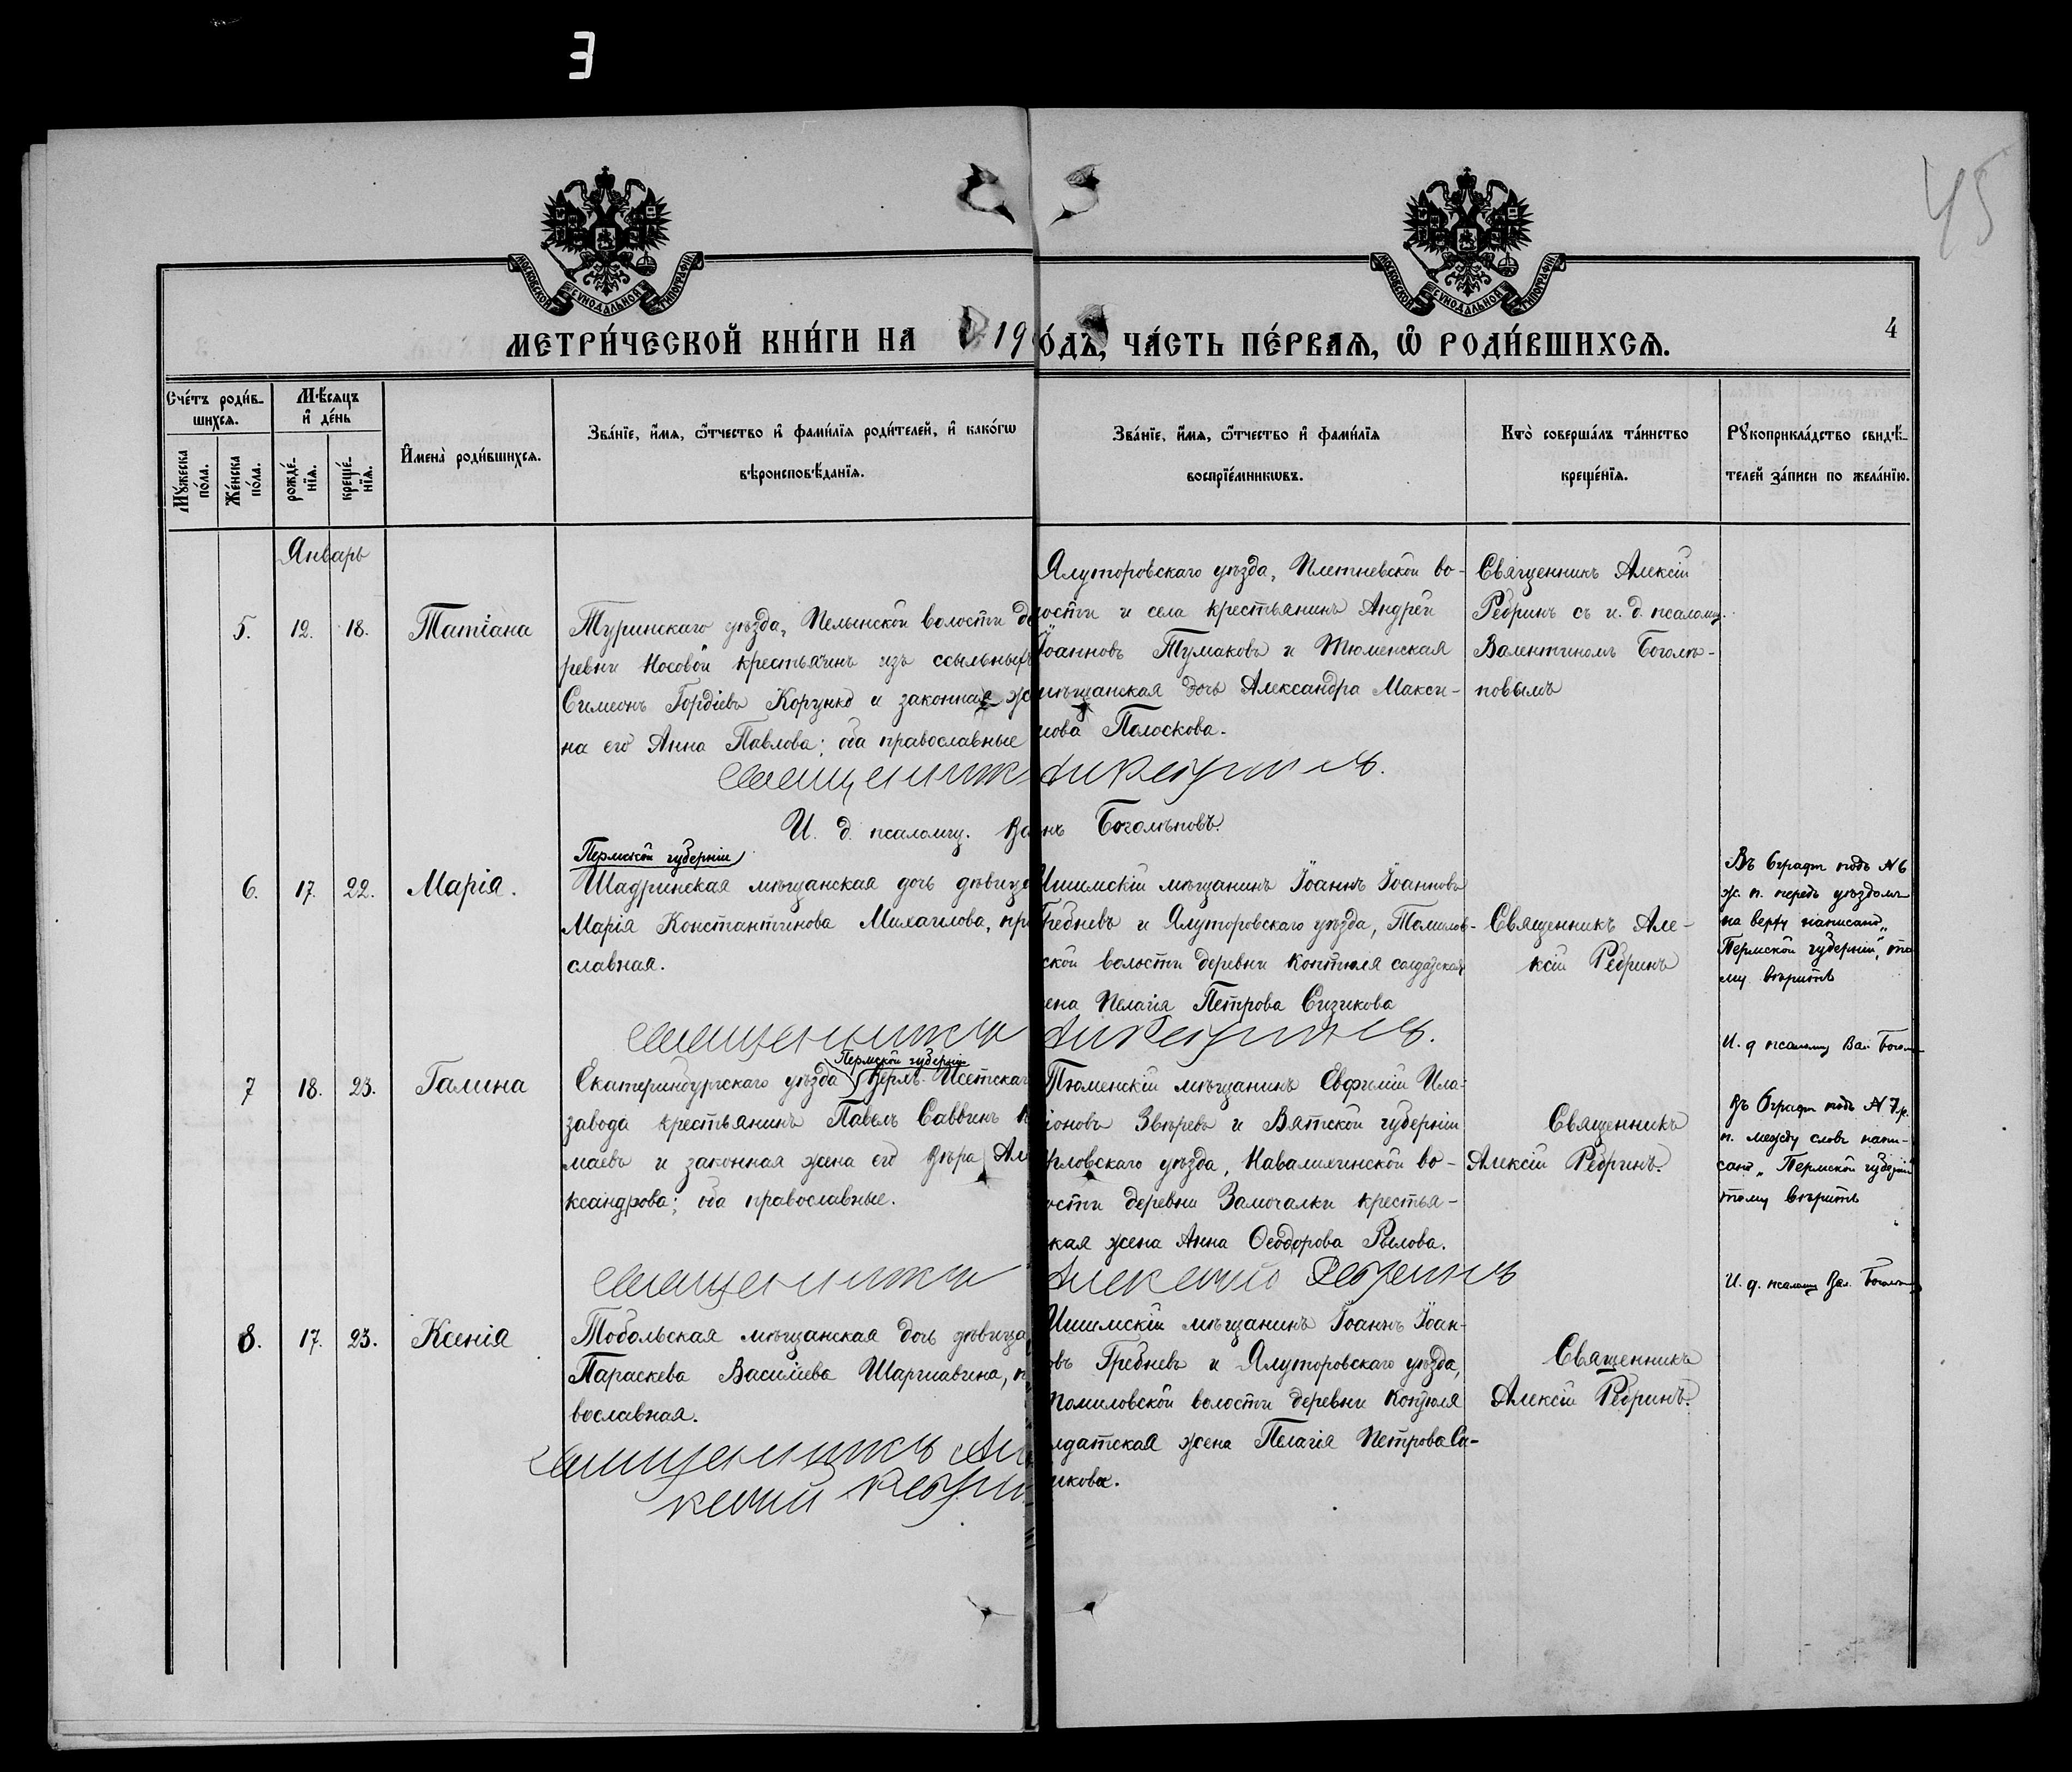 Е
45
МОСКОВСКОЙ СѴНОДАЛЬНОЙ ТИПОГРАФІИ
МОСКОВСКОЙ СѴНОДАЛЬНОЙ ТИПОГРАФІИ
МЕТРИ́ЧЕСКОЙ КНИ́ГИ НА 19
О́ДЪ, ЧА́СТЬ ПЕ́РВАѦ, Ѡ҆ РОДИ́ВШИХСѦ.
4
Сче́тъ роди́в-
шихсѧ.
Мꙋ́жеска
по́ла.
Же́нска
по́ла.
Мѣ́сѧцъ
и҆ де́нь
рожде́-
нїѧ.
креще́-
нїѧ.
И҆мена̀ роди́вшихсѧ.
Зва́нїе, и҆́мѧ, ѻ҆́тчество и҆ фами́лїѧ роди́телей, и҆ како́гѡ
вѣроисповѣ́данїѧ.
Зва́нїе, и҆́мѧ, ѻ҆́тчество и҆ фами́лїѧ
воспрїе́мникѡвъ.
Кто̀ соверша́лъ та́инство
креще́нїѧ.
Рꙋкоприкла́дство свидѣ́-
телей за́писи по жела́нїю.
Январь
5.
12.
18.
Татіана
Туринскаго уѣзда, Пелынской волости де
ревни Носовой крестьянинъ изъ ссыльныхъ
Симеонъ Гордіевъ Корунко и законная же
на его Анна Павлова; оба православные
Ялуторовскаго уѣзда, Плетневской во-
лости и села крестьянинъ Андрей
Іоанновъ Тумаковъ и Тюменская
мѣщанская дочь Александра Макси-
мова Полоскова.
Священникъ Алексій
Ребринъ съ и. д. псаломщ.
Валентиномъ Боголѣ-
повымъ
Священник
Ал Ребринъ.
И. д. псаломщ. Ва
нъ Боголѣповъ.
6.
17.
22.
Марія.
Пермской губерніи
Шадринская мѣщанская дочь дѣвица
Марія Константинова Михаилова, пра
славная.
Ишимскій мѣщанинъ Іоаннъ Іоанновъ
Гребневъ и Ялуторовскаго уѣзда, Томилов-
ской волости деревни Коптюля солдатская
ена Пелагія Петрова Сизикова
Священникъ Але-
ксій Ребринъ
Въ 6 графѣ подъ № 6
ж. п. передъ уѣздомъ
на верху написано „
Пермской губерніи“, то
му вѣрить
И. д псаломщ Вал Богол
Священникъ
Ал Ребринъ.
7
18.
23.
Галина
Пермской губерніи
Екатеринбургскаго уѣзда Верхъ-Исетскаг
завода крестьянинъ Павелъ Саввинъ К
маевъ и законная жена его Вѣра Але
ксандрова; оба православные.
Тюменскій мѣщанинъ Евфимій Ила-
іоновъ Звѣревъ и Вятской губерніи
рловскаго уѣзда, Навалихинской во-
ости деревни Замочалки крестья-
ская жена Анна Ѳеодорова Рылова.
Священникъ
Алексій Ребринъ.
Въ 6 графѣ подъ № 7 ж.
п. между словъ напи-
сано „Пермской губерніи“
тому вѣрить
И. д. псаломщ Вал. Богол
Священникъ
Алексій Ребринъ
8.
17.
23.
Ксенія
Тобольская мѣщанская дочь дѣвица
Параскева Василіева Шаргиавгина, п
вославная.
Ишимскій мѣщанинъ Іоаннъ Іоан-
овъ Гребневъ и Ялуторовскаго уѣзда,
Томиловской волости деревни Коптюля
лдатская жена Пелагія Петрова Си-
икова.
Священникъ
Алексій Ребринъ.
Священникъ Ал
ксій Ребри